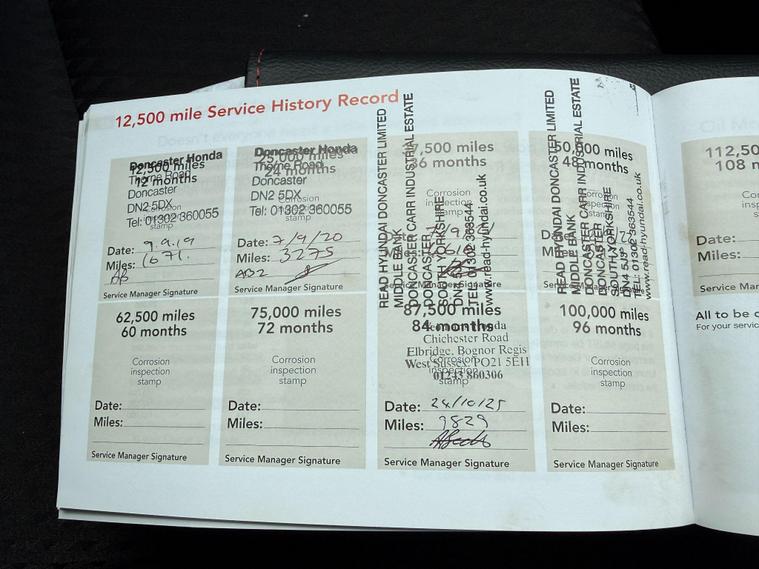 12,500 mile Service History Record
Doncaster Honda
12,500 miles
Thorne Road
12 months
Doncaster
DN2 5DX
Corrosion
Tel: 01302 360055
stamp
Date: 9.9.19
Miles: 1671.
AB
Service Manager Signature
Doncaster Honda
25,000 miles
Thorne Road
24 months
Doncaster
DN2 5DX
Corrosion
Tel: 01302 360055
stamp
Date: 7/9/20
Miles: 3275
AB2
Service Manager Signature
READ HYUNDAI DONCASTER LIMITED
MIDDLE BANK
DONCASTER CARR INDUSTRIAL ESTATE
DONCASTER
SOUTH YORKSHIRE
TEL: 01302 363544
www.read-hyundai.co.uk
7,500 miles
36 months
Corrosion
inspection
stamp
READ HYUNDAI DONCASTER LIMITED
MIDDLE BANK
DONCASTER CARR INDUSTRIAL ESTATE
DONCASTER
SOUTH YORKSHIRE
DN4 5J
TEL: 01302 363544
www.read-hyundai.co.uk
50,000 miles
48 months
Corrosion
inspection
stamp
62,500 miles
60 months
Corrosion
inspection
stamp
Date:
Miles:
Service Manager Signature
75,000 miles
72 months
Corrosion
inspection
stamp
Date:
Miles:
Service Manager Signature
87,500 miles
84 months
Chichester Road
Elbridge, Bognor Regis
West Sussex, PO21 5EH
01243 860306
stamp
Date: 24/10/25
Miles: 9829
Service Manager Signature
100,000 miles
96 months
Corrosion
inspection
stamp
Date:
Miles:
Service Manager Signature
112,50
108 m
Date:
Miles:
Service Man
All to be c
For your servic